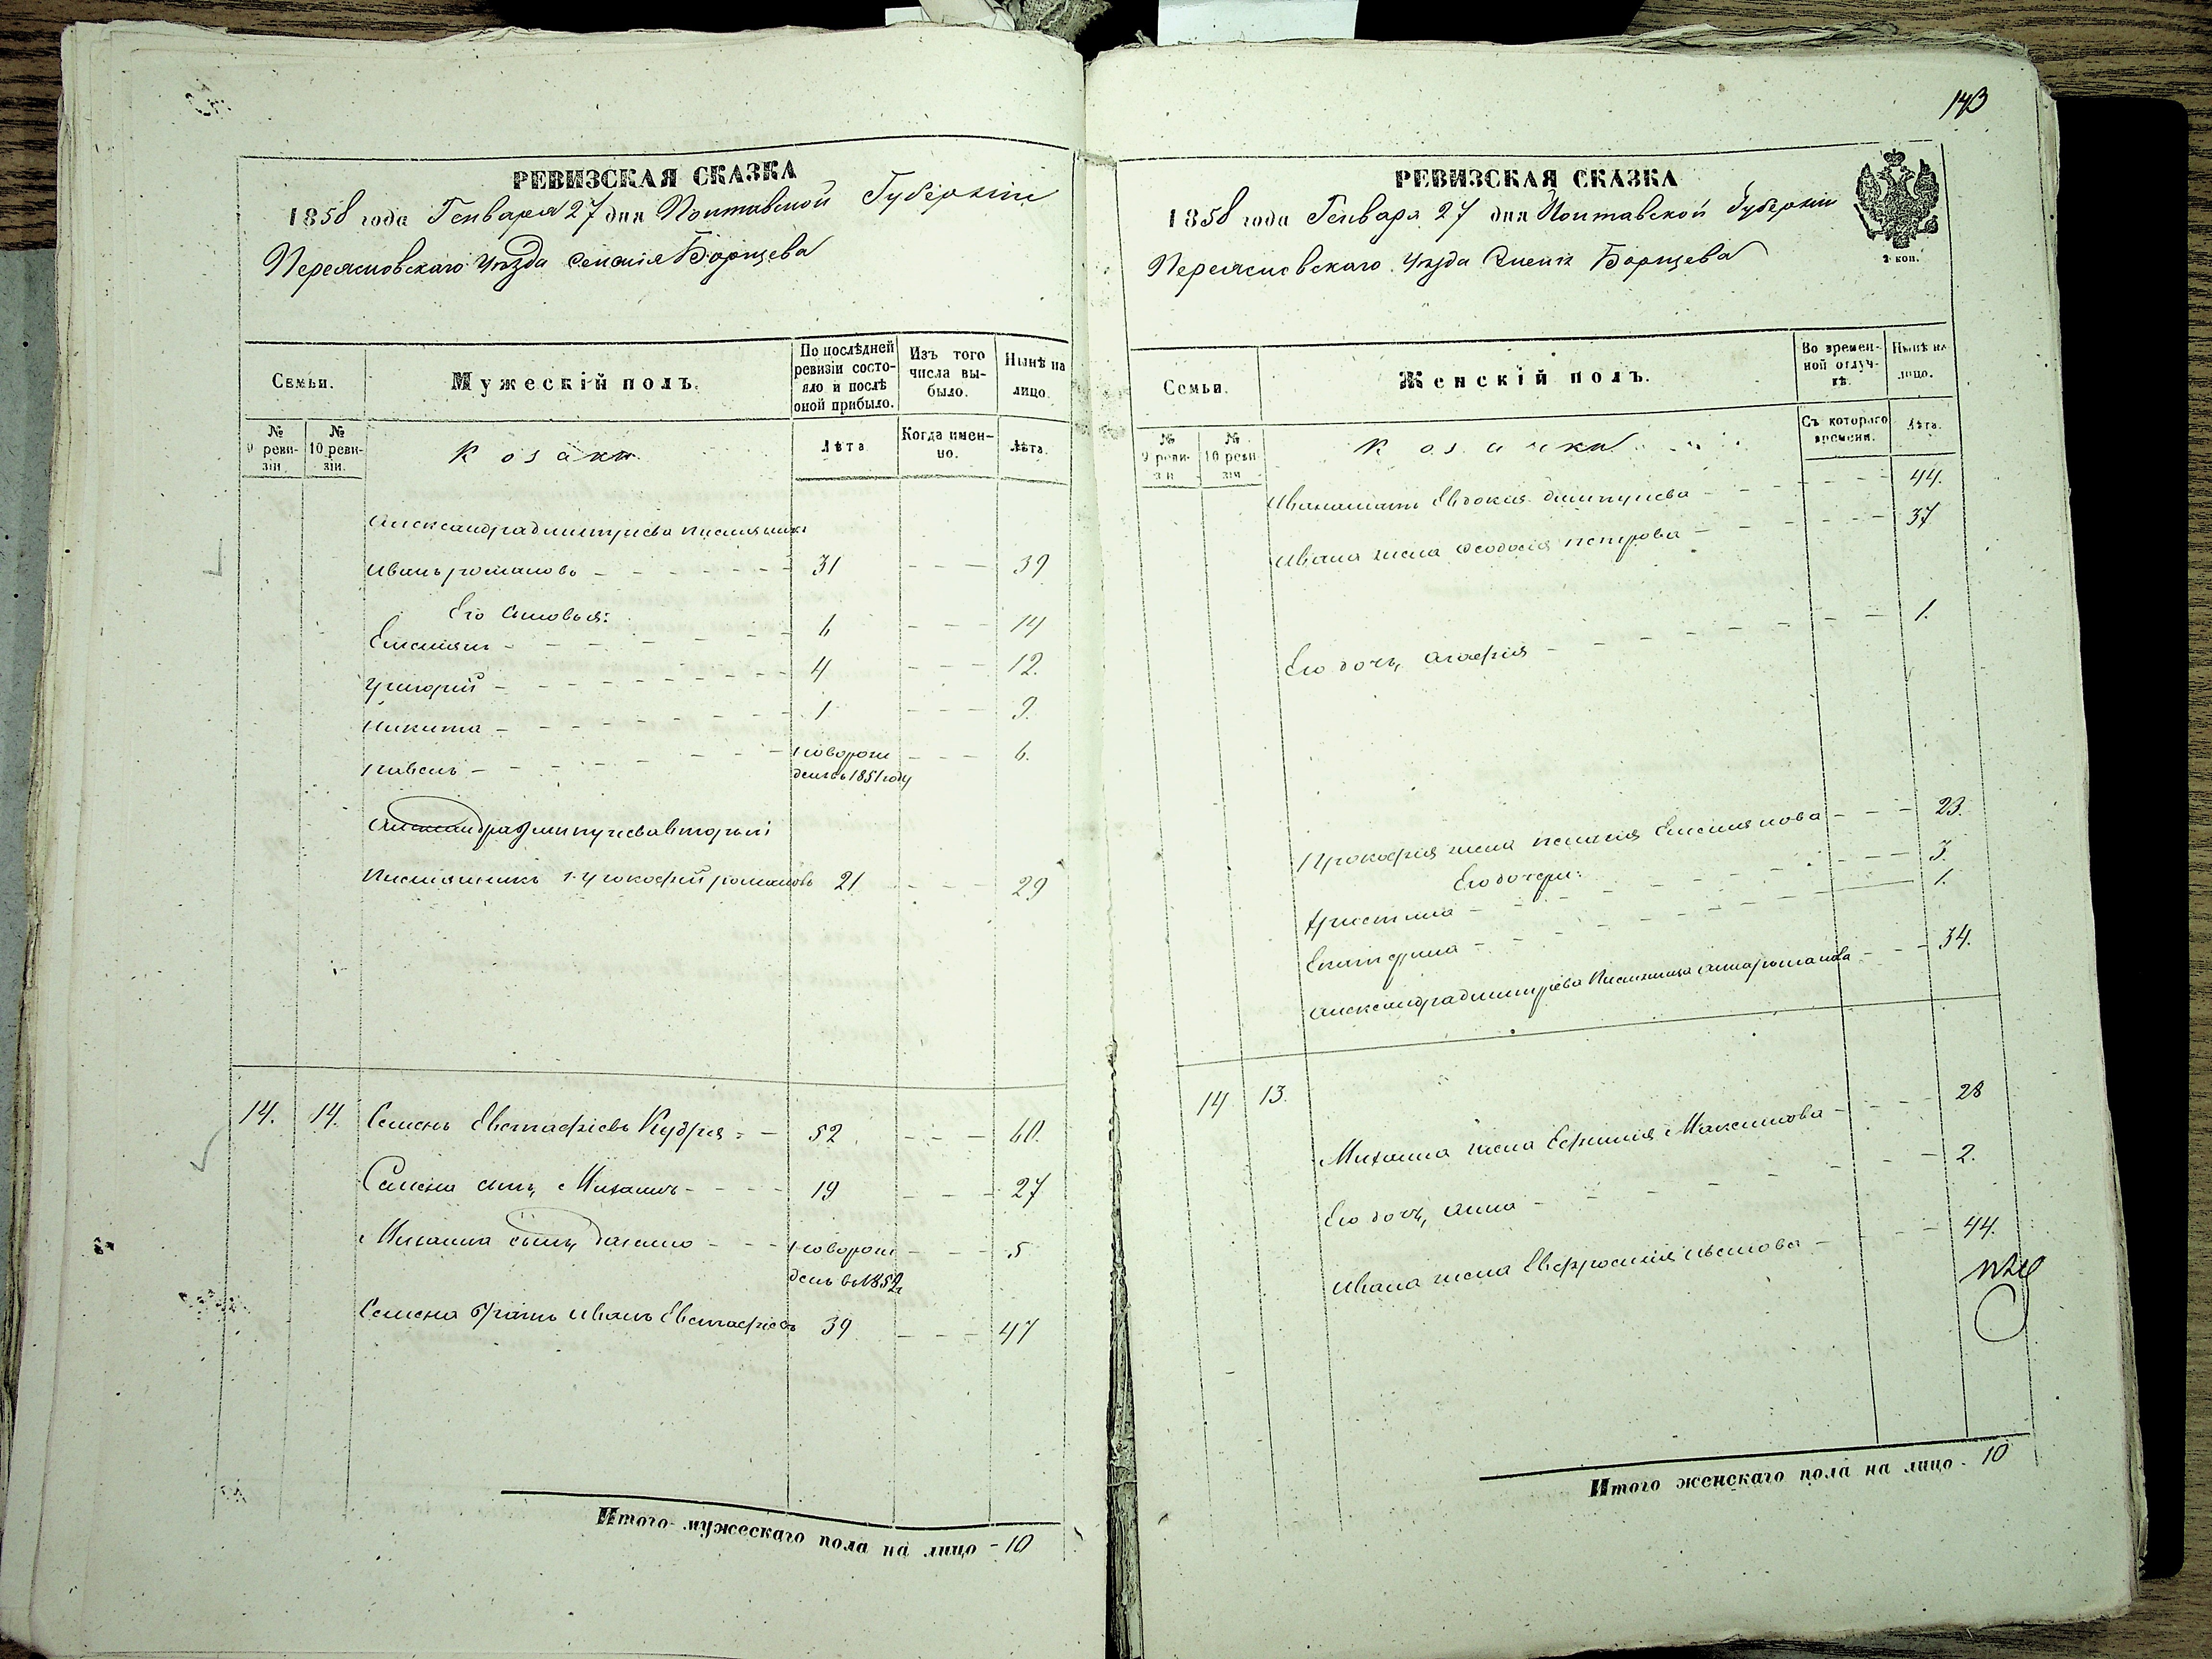 РЕВИЗСКАЯ СКАЗКА
1858 года Генваря 27 дня Полтавской Губерніи
Переяславского Уѣзда Селенія Борщева
Семьи.
Мужескій полъ.
По послѣдней ревизіи состояло и послѣ оной прибыло.
Изъ того числа выбыло.
Нынѣ на лицо.
№ 9 ревизіи.
№ 10 ревизіи.
Козаки
Лѣта
Когда именно.
Лѣта.
Александра Дмитріева племянникъ
Иванъ Романовъ - 31 - 39
Его сыновья:
Емельянъ - 6 - 14
Григорій - 4 - 12.
Никита - 1 - 9.
Павелъ - новорожденъ въ 1851 году - 6.
Александра Дмитріева вторый
Племянникъ Прокофій Романовъ 21 - 29
14. 14. Семенъ Евстафіевъ Кудря - 52 - 60.
Семена сынъ Михаилъ - 19 - 27
Михаила сынъ Данило - новорожденъ въ 1852 - 5
Семена братъ Иванъ Евстафіевъ 39 - 47
Итого мужескаго пола на лицо - 10
143
РЕВИЗСКАЯ СКАЗКА
1858 года Генваря 27 дня Полтавской Губерніи
Переяславского Уѣзда Борщева
2 коп.
Семьи.
Женскій полъ.
Во временной отлучкѣ.
Нынѣ на лицо.
№ 9 ревизіи
№ 10 ревизіи
Козачки
Съ котораго времени.
Лѣта.
Ивана мать Евдокия Дмитриева - 44.
Ивана жена Феодосія Петрова - 37
Его дочь Агафія - 1.
Прокофія жена Пелагія Емельянова - 23.
Его дочери:
Христина - 3.
Екатерина - 1.
Александра Дмитріева Племяница Анна Романова - 34.
14 13.
Михаила жена Ефимія Максимова - 28
Его дочь Анна - 2.
Ивана жена Евфросинія - 44.
Итого женскаго пола на лицо - 10